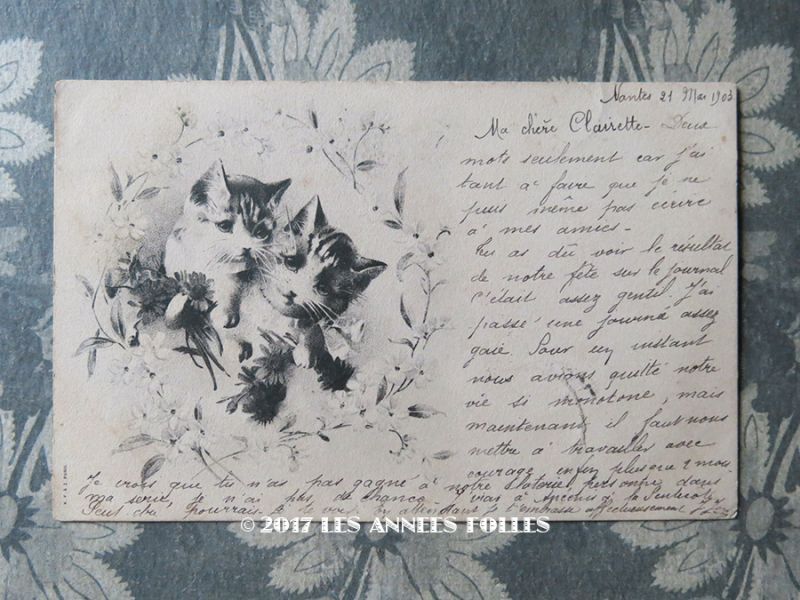 Nantes 21 Mai 1903
Ma chère Clairette - Deux
mots seulement car j'ai
tant à faire que je ne
puis même pas écrire
à mes amies -
Tu as dû voir le résultat
de notre fête sur le journal
C'était assez gentil. J'ai
passé une journée assez
gaie. Pour un instant
nous avions quitté notre
vie si monotone, mais
maintenant il faut nous
mettre à travailler avec
courage enfin plus que 2 mois
Je crois que tu n'as pas gagné à notre loterie, personne dans
ma série, je n'ai pas de chance - J'irai à la Pentecôte
Peut-être pourrais-je te voir En attendant je t'embrasse affectueusement
© 2017 LES ANNEES FOLLES